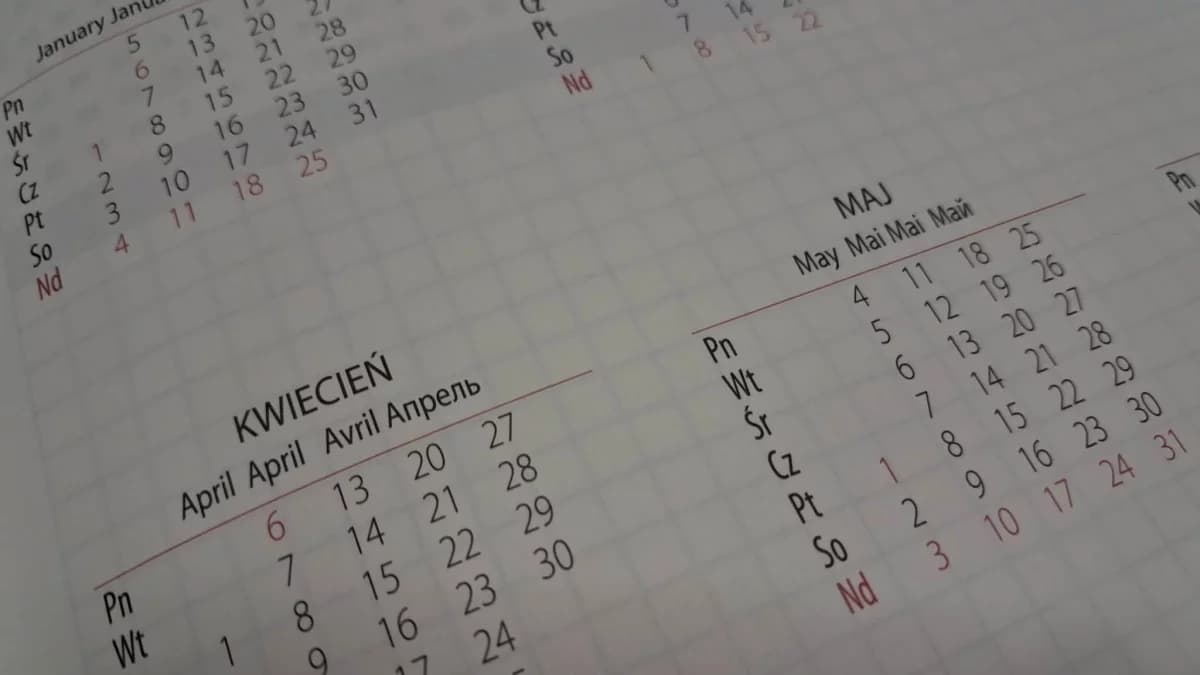 January
Pn 5 12
Wt 6 13 20 27
Śr 7 14 21 28
Cz 1 8 15 22 29
Pt 2 9 16 23 30
So 3 10 17 24 31
Nd 4 11 18 25
Pt
So 7 14
Nd 1 8 15 22
KWIECIEŃ
April April Avril Апрель
Pn 6 13 20 27
Wt 7 14 21 28
1 8 15 22 29
9 16 23 30
17 24
MAJ
May Mai Mai Май
Pn 4 11 18 25
Wt 5 12 19 26
Śr 6 13 20 27
Cz 7 14 21 28
Pt 1 8 15 22 29
So 2 9 16 23 30
Nd 3 10 17 24 31
Pn